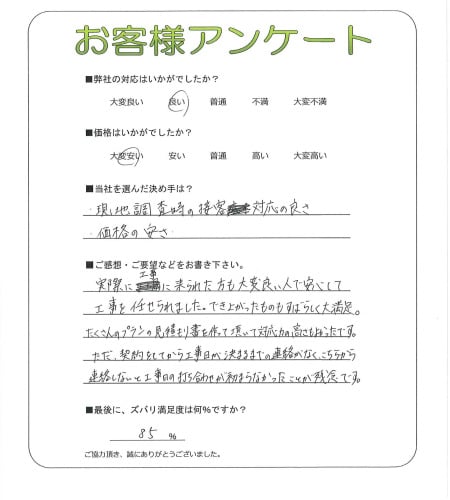 お客様アンケート
■弊社の対応はいかがでしたか？
大変良い 良い 普通 不満 大変不満
■価格はいかがでしたか？
大変安い 安い 普通 高い 大変高い
■当社を選んだ決め手は？
・現地調査時の接客対応の良さ
・価格の安さ
■ご感想・ご要望などをお書き下さい。
実際に工事に来られた方も大変良い人で安心して
工事を任せられました。でき上がったものもすばらしく大満足。
たくさんのプランの見積もり書を作って頂いて対応力の高さもよかったです。
ただ、契約をしてから工事日が決まるまでの連絡がなく、こちらから
連絡しないと工事日の打ち合わせが始まらなかったことが残念です。
■最後に、ズバリ満足度は何%ですか？
85 %
ご協力頂き、誠にありがとうございました。